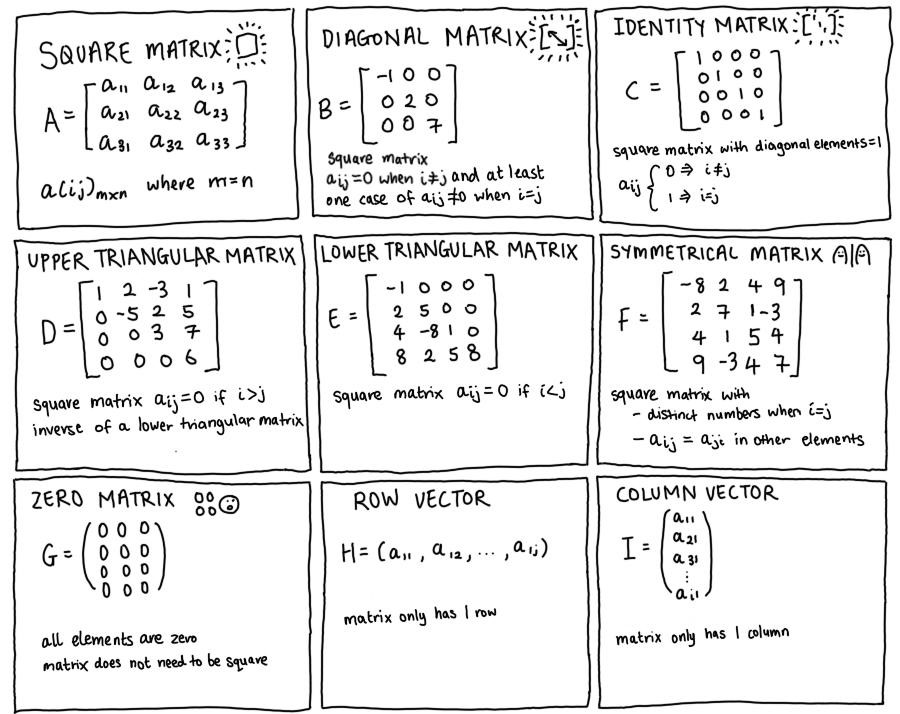 SQUARE MATRIX
A = [ a11 a12 a13
a21 a22 a23
a31 a32 a33 ]
a(ij)m×n where m=n
DIAGONAL MATRIX
B = [ -1 0 0
0 2 0
0 0 7 ]
square matrix
aij=0 when i≠j and at least
one case of aij≠0 when i=j
IDENTITY MATRIX
C = [ 1 0 0 0
0 1 0 0
0 0 1 0
0 0 0 1 ]
square matrix with diagonal elements=1
aij { 0 ⇒ i≠j
1 ⇒ i=j
UPPER TRIANGULAR MATRIX
D = [ 1 2 -3 1
0 -5 2 5
0 0 3 7
0 0 0 6 ]
square matrix aij=0 if i>j
inverse of a lower triangular matrix
LOWER TRIANGULAR MATRIX
E = [ -1 0 0 0
2 5 0 0
4 -8 1 0
8 2 5 8 ]
square matrix aij=0 if i<j
SYMMETRICAL MATRIX
F = [ -8 2 4 9
2 7 1 -3
4 1 5 4
9 -3 4 7 ]
square matrix with
- distinct numbers when i=j
- aij = aji in other elements
ZERO MATRIX
G = ( 0 0 0
0 0 0
0 0 0
0 0 0 )
all elements are zero
matrix does not need to be square
ROW VECTOR
H = (a11, a12, ..., a1j)
matrix only has 1 row
COLUMN VECTOR
I = ( a11
a21
a31
⋮
ai1 )
matrix only has 1 column